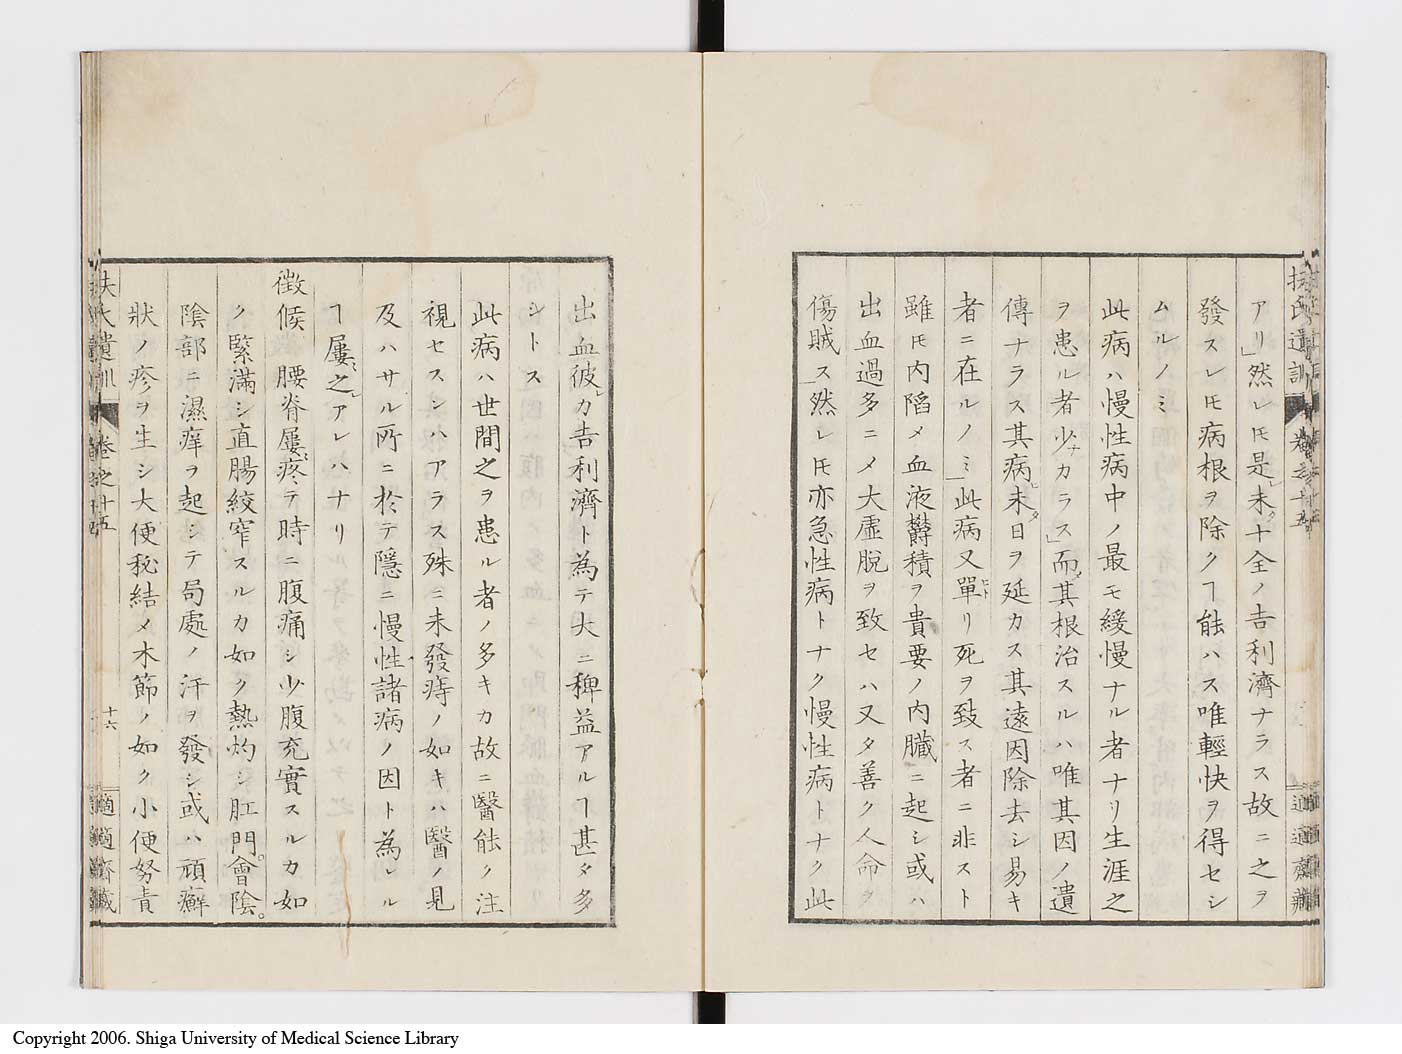 扶氏遺訓 卷之十五 適適齋藏
アリ」然レ𪜈是レ未タ十全ノ吿利濟ナラス故ニ之ヲ
發スレ𪜈病根ヲ除クヿ能ハス唯輕快ヲ得セシ
ムルノミ
此病ハ慢性病中ノ最モ緩慢ナル者ナリ生涯之
ヲ患ル者少ナカラス」而メ其根治スルハ唯其因ノ遺
傳ナラス其病未タ日ヲ延カス其遠因除去シ易キ
者ニ在ルノミ」此病又單リ死ヲ致ス者ニ非スト
雖𪜈内陷メ血液欝積ヲ貴要ノ内臓ニ起シ或ハ
出血過多ニメ大虚脱ヲ致セハ又タ善ク人命ヲ
傷賊ス」然レ𪜈亦急性病トナク慢性病トナク此
出血彼レカ吿利濟ト為テ大ニ稗益アルヿ甚タ多
シトス
此病ハ世間之ヲ患ル者ノ多キカ故ニ醫能ク注
視セスンハアラス殊ニ未發痔ノ如キハ醫ノ見
及ハサル所ニ於テ隱ニ慢性諸病ノ因ト為レル
ヿ屢之レアレハナリ
徴候腰脊屢疼ミテ時ニ腹痛シ少腹充實スルカ如
ク緊滿シ直腸絞窄スルカ如ク熱灼シ肛門。會陰。
陰部ニ濕痒ヲ起シテ局處ノ汗ヲ發シ或ハ頑癬
狀ノ疹ヲ生シ大便秘結メ木節ノ如ク小便努責
扶氏遺訓 卷之十五 十六 適適齋藏
Copyright 2006. Shiga University of Medical Science Library